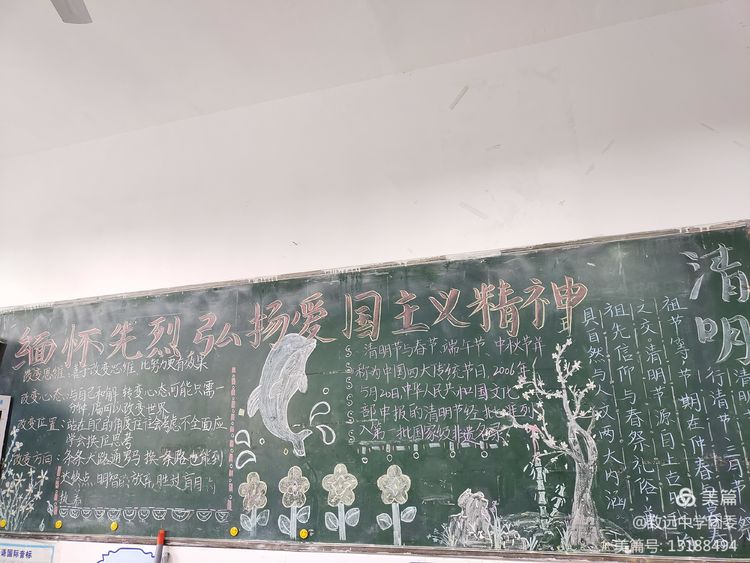 缅怀先烈弘扬爱国主义精神
清明
改变思维:善于改变思维,比努力更有效果
改变心态:与自己和解,转变心态可能只需一
改变世界
改变位置:站在自己的角度往往会考虑不全面应
学会换位思考
改变方向:条条大路通罗马 换一条路也能到
达终点,明智的放弃,胜过盲目的
执着
清明节与春节、端午节、中秋节并
称为中国四大传统节日,2006年
5月20日,中华人民共和国文化
部申报的清明节经批准列
入第一批国家级非遗名录
祖节等,节期在仲春
之交,清明节源自上古
祖先信仰与春祭礼俗,兼
具自然与人文两大内涵
美篇
美篇号: 13188494
语国际音标